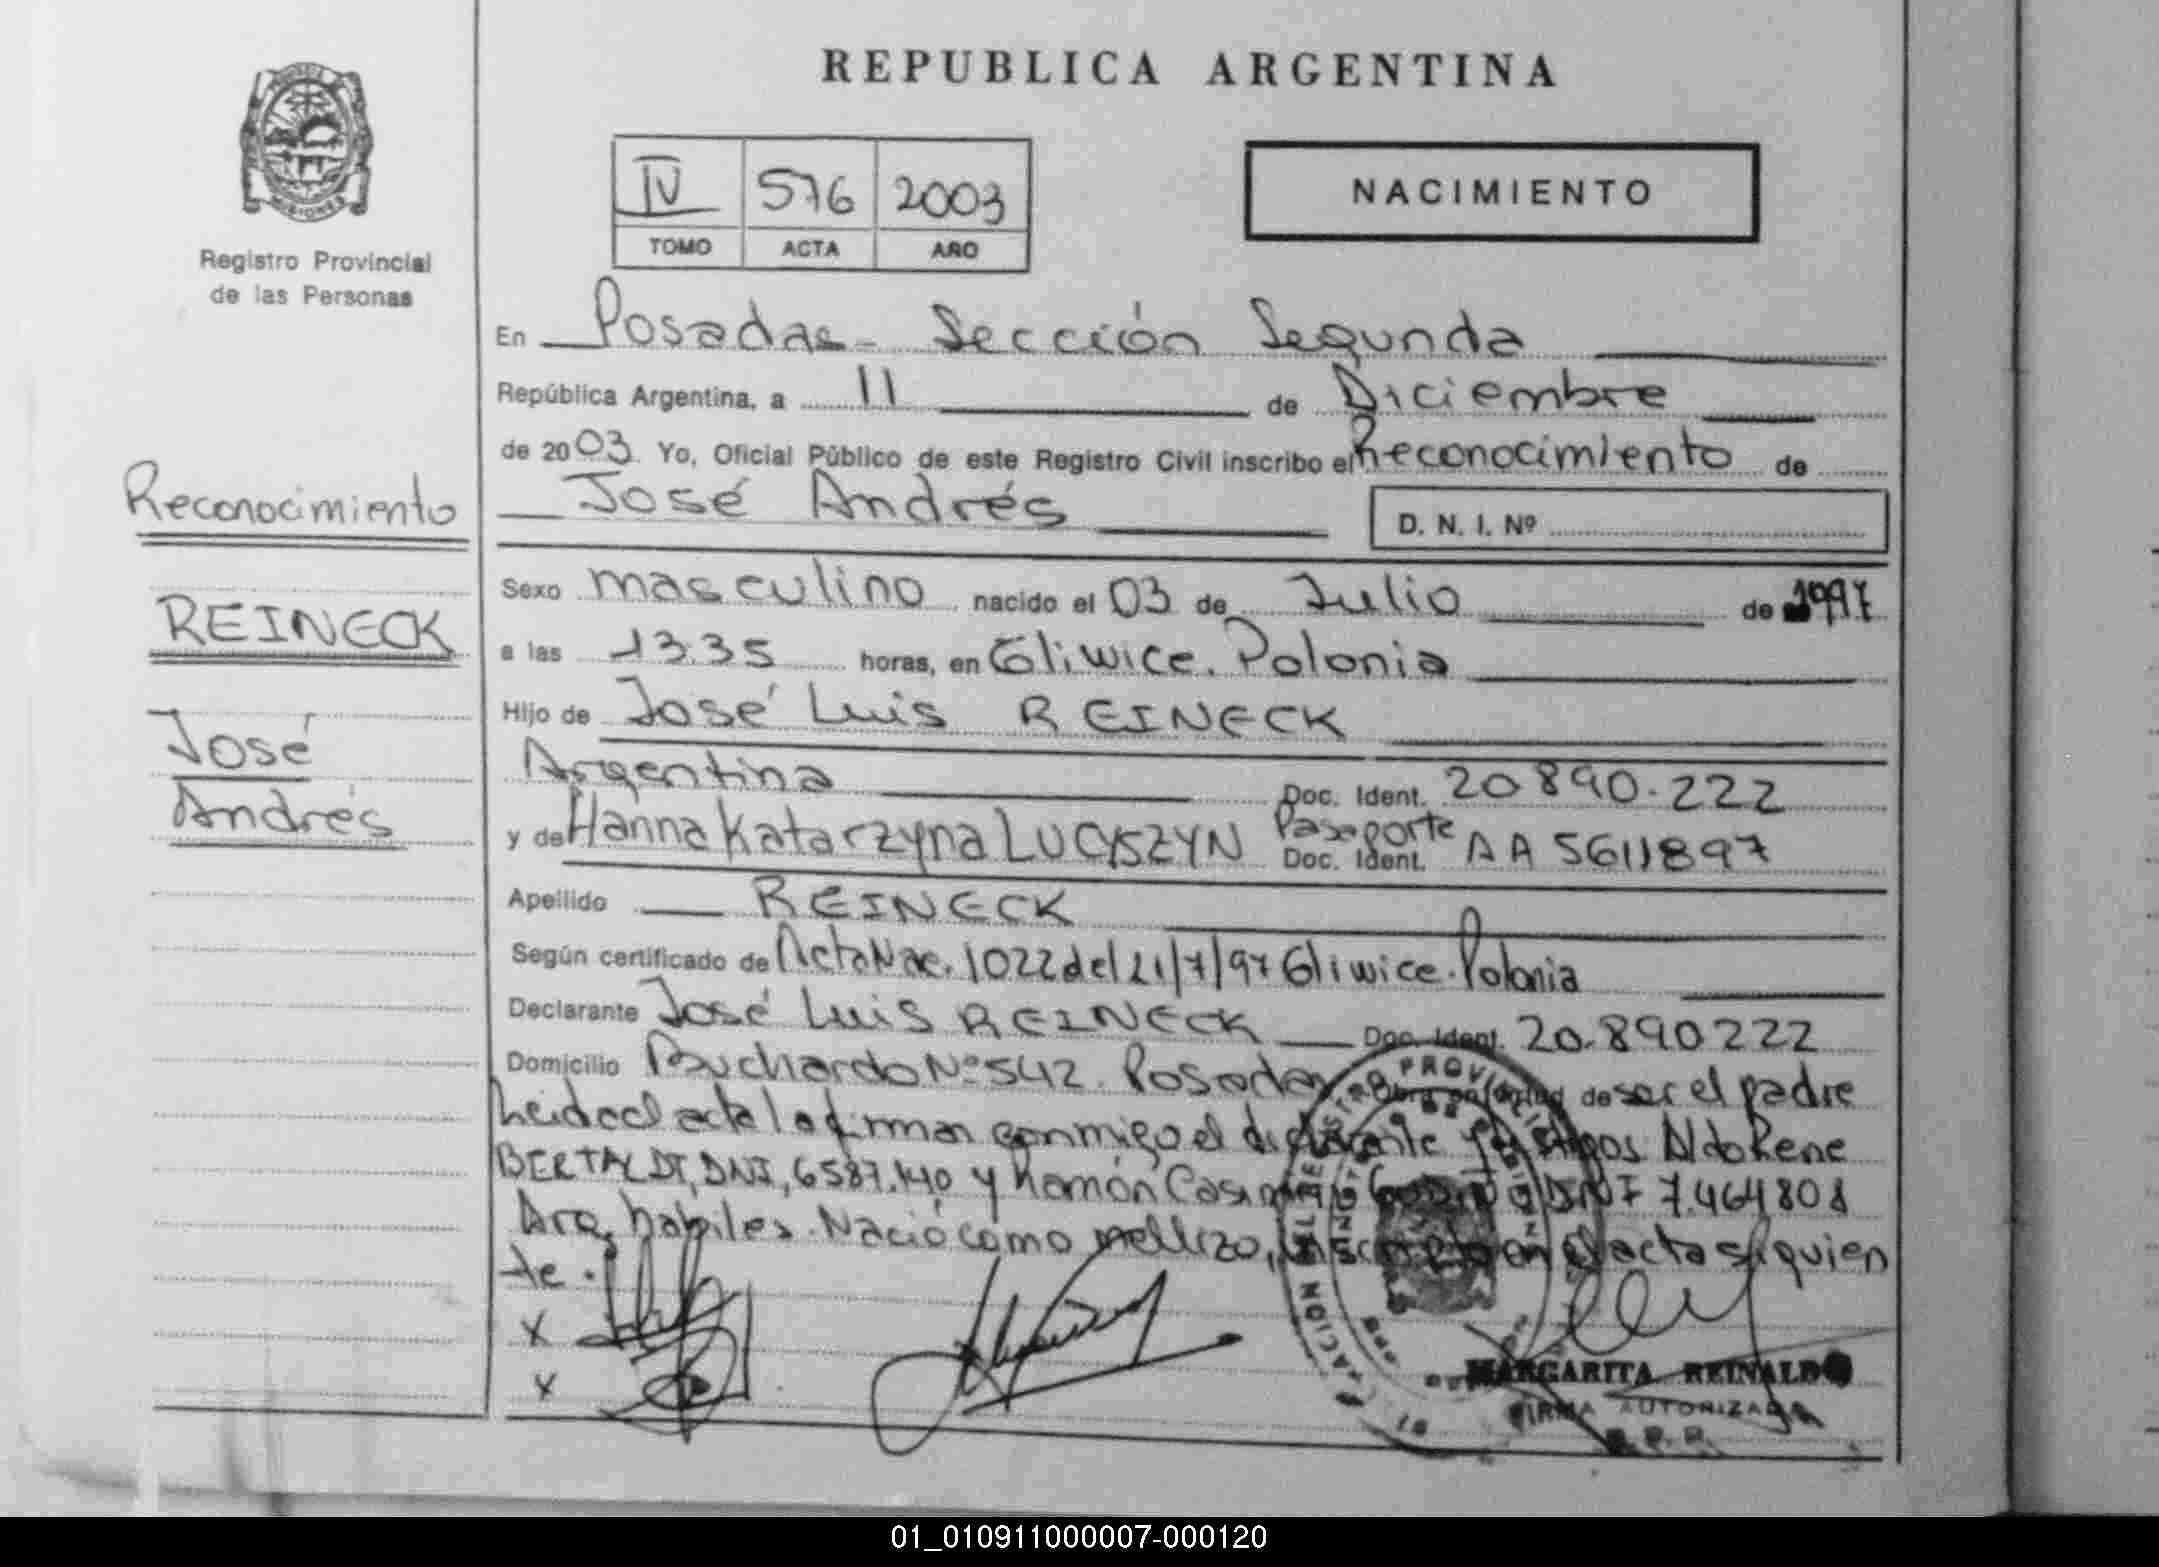 REPUBLICA ARGENTINA
MISIONES
Registro Provincial
de las Personas
IV 576 2003
TOMO ACTA AÑO
NACIMIENTO
En Posadas - Sección Segunda
República Argentina, a 11 de Diciembre
de 2003. Yo, Oficial Público de este Registro Civil inscribo el Reconocimiento de
José Andrés D. N. I. Nº
Reconocimiento
REINECK
José
Andrés
Sexo masculino nacido el 03 de Julio de 1997
a las 13.35 horas, en Gliwice. Polonia
Hijo de José Luis REINECK
Argentina Doc. Ident. 20890.222
y de Hanna Katarzyna Pasaporte Doc. Ident. AA 5611897
Apellido REINECK
Según certificado de Acta Nac. 1022 del 21/7/97 Gliwice. Polonia
Declarante José Luis REINECK Doc. Ident. 20.890222
Domicilio Buchardo Nº 542. Posadas de ser el padre
Leida el acta la firman conmigo el declarante y testigos Aldo Rene
BERTALDI, DNI, 6587.140 y Ramón Casimiro DNI 7.464808
Arg. habiles. Nació como mellizo, inscripto en el acta siguien
te.
X
X
MARGARITA REINALDO
FIRMA AUTORIZADA
R. P. P.
01_010911000007-000120